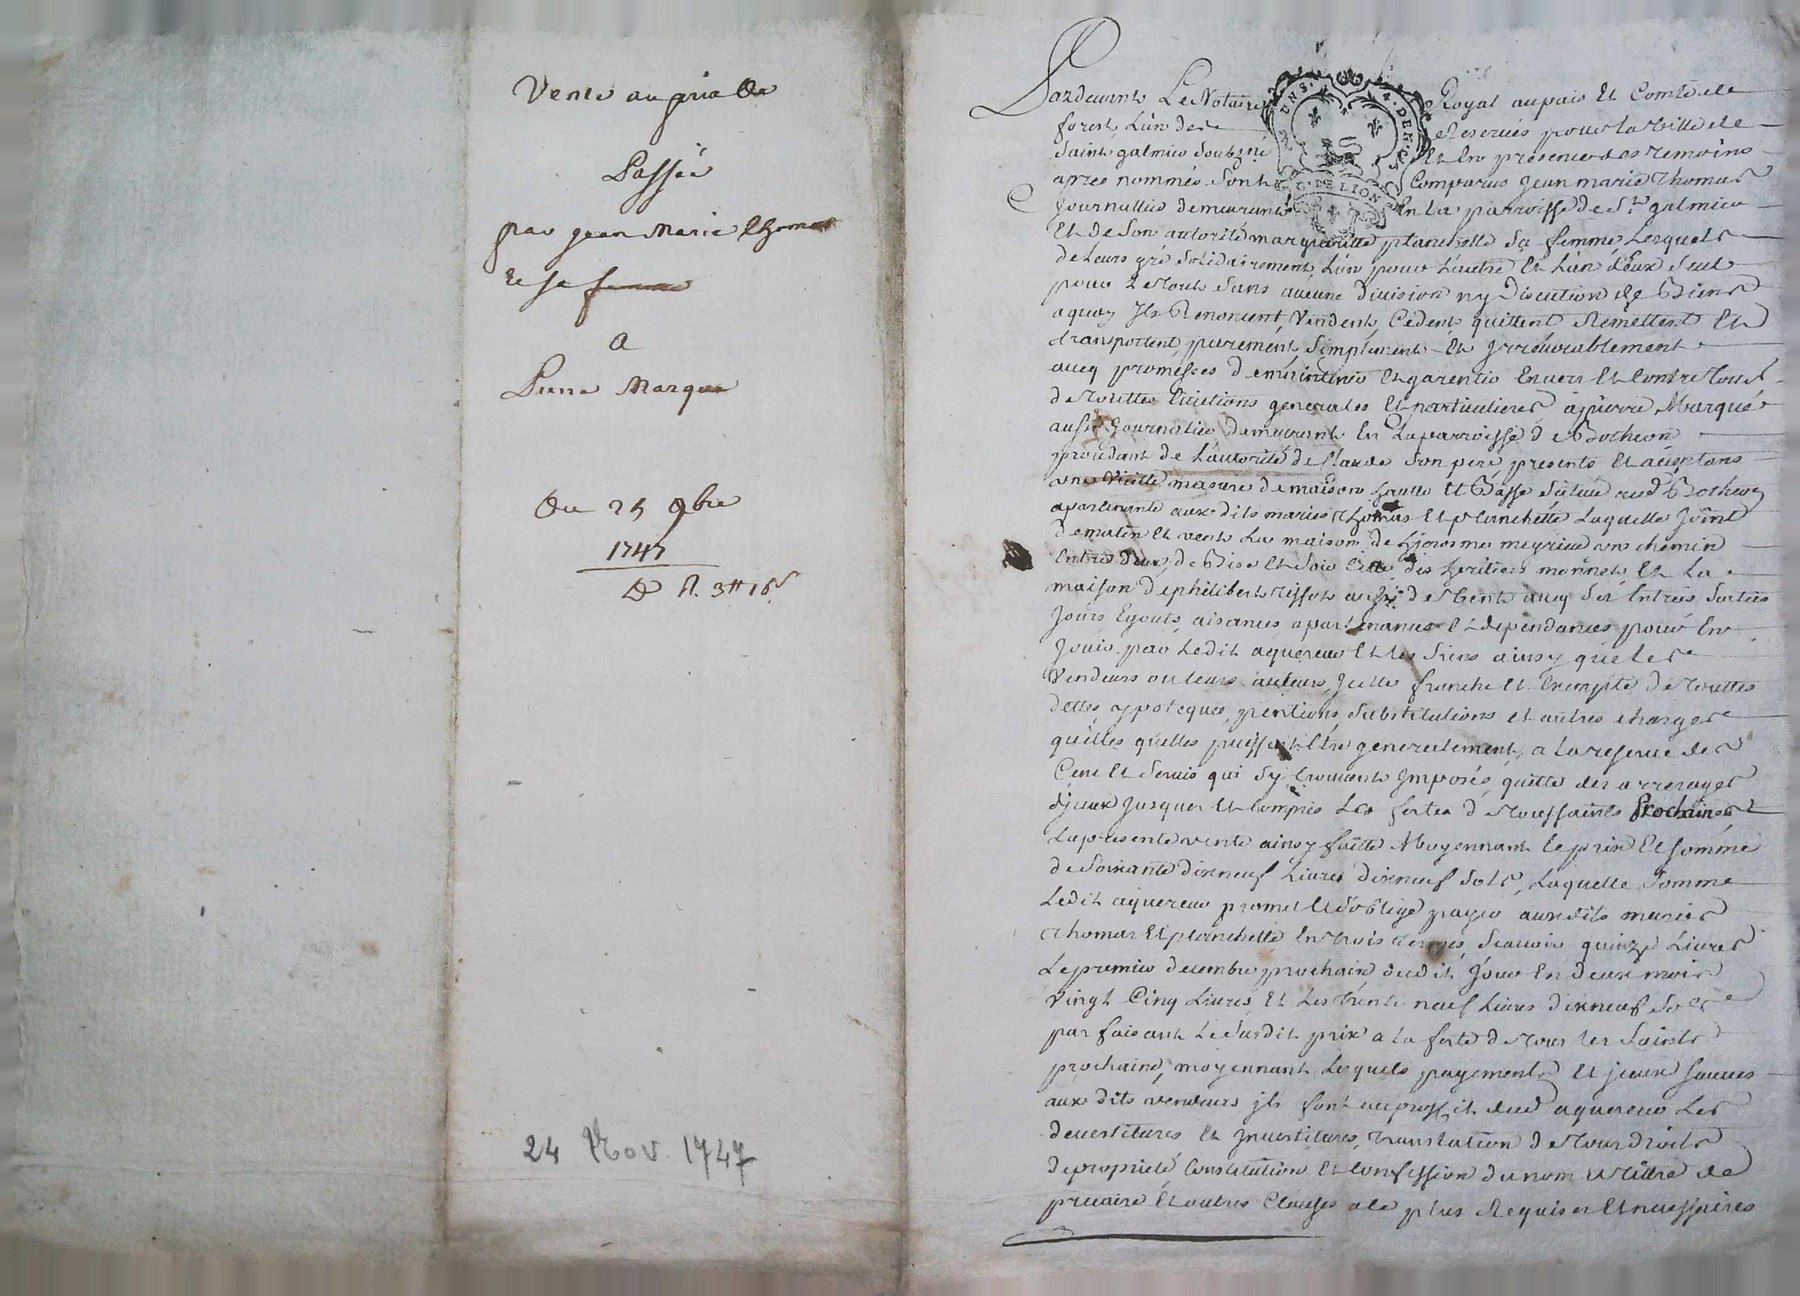 Vente au prix De
Passée
par Jean Marie Thomas
et sa femme
A
Pierre Marque
Du 24 9bre
1747
24 Nov. 1747
Pardevant Le Notaire Royal au païs Et Comté de
forest L'un des Reservés pour la Ville de
Saint galmier soubzné Et En presence des temoins
apres nommés. Sont Comparus Jean marie Thomas
Journallier demeurant En La parroisse de St galmier
Et de Son autorité margueritte planchette Sa femme, Lesquels
de Leurs gré solidairement, L'un pour L'autre Et L'un d'Eux seul
pour Le tout sans aucune Division ny Discution de Biens
a quoy Ils Renoncent, Vendent, Cedent, quittent Remettent Et
transportent, purement, simplement Et Irrevocablement
aveq promesses de maintenir Et garentir Envers Et Contre tous
de touttes Evictions generales Et particulieres à pierre Marque
aussi Journalier Demeurant En La parroisse de Bothéon
procedant de L'autorité de Claude Son pere, presents Et acceptans
une Vieille masure de maison haulte Et Basse Située aud Botheon
apartenante aux dits mariés Thomas Et planchette Laquelle Joint
de matin Et vent La maison de meyrieu un chemin
Entre deux, de Bise Et Soir Celle des heritiers monnet, Et La
maison de philibert aussi de Vent aveq Ses Entrées sorties
Jours Egouts, aisances apartenances Et dependances pour En
Jouir par Ledit aquereur Et les Siens ainsy que les
Vendeurs ou leurs auteurs, Icelle franche Et Exempte de touttes
dettes, ypoteques, pentions, substitutions et autres charges
quelles quelles puissent Etre generalement, a la reserve des
Cens Et Servis qui S'y trouvent Imposés, quitte des arrerages
d'jceux Jusques Et Compris Les fettes de toussaints Prochaines
La presente vente ainsy faitte Moyennant le prix Et somme
de Soixante dixneuf Livres dixneuf sols, Laquelle somme
Ledit aquereur promet Et s'oblige payer aux dits mariés
Thomas Et planchette En trois termes, Scavoir quinze Livres
Le premier decembre prochain dudit Jour En deux mois
Vingt Cinq Livres, Et Les trente neuf Livres dixneuf Sols
parfaisant Le Susdit prix a La fette de tous les saints
prochaine, moyennant Lesquels payements Et jceux
aux dits vendeurs jls font au proffit dud aquereur Les
devestitures Et Investitures, translation de tous droits
de propriété Constitution Et Confession du nom Et tiltre de
precaire Et autres Clauses a Ce plus Requises Et necessaires